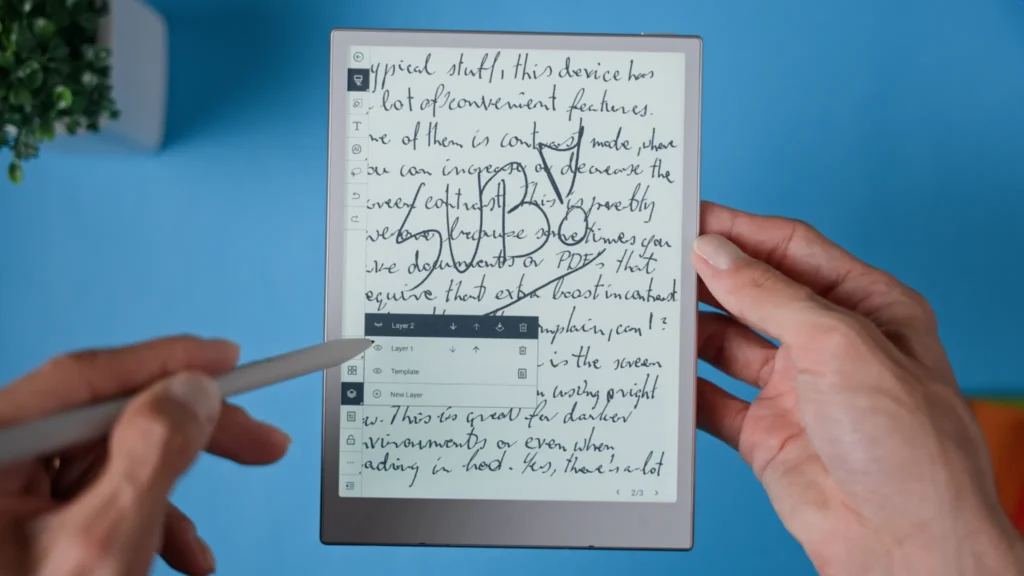 ypical stuff, this device has
lot of convenient features.
ne of them is contrast mode, where
ou can increase or decrease the
creen contrast. This is pretty
because sometimes you
ave documents or PDFs that
equire that extra boost in contrast
SUB!
complain, can I?
is the screen
using right
w. This is great for darker
nvironments or even when
ading in bed. Yes, there's a lot
T
AI
Layer 2
Layer 1
Template
New Layer
< 2/3 >